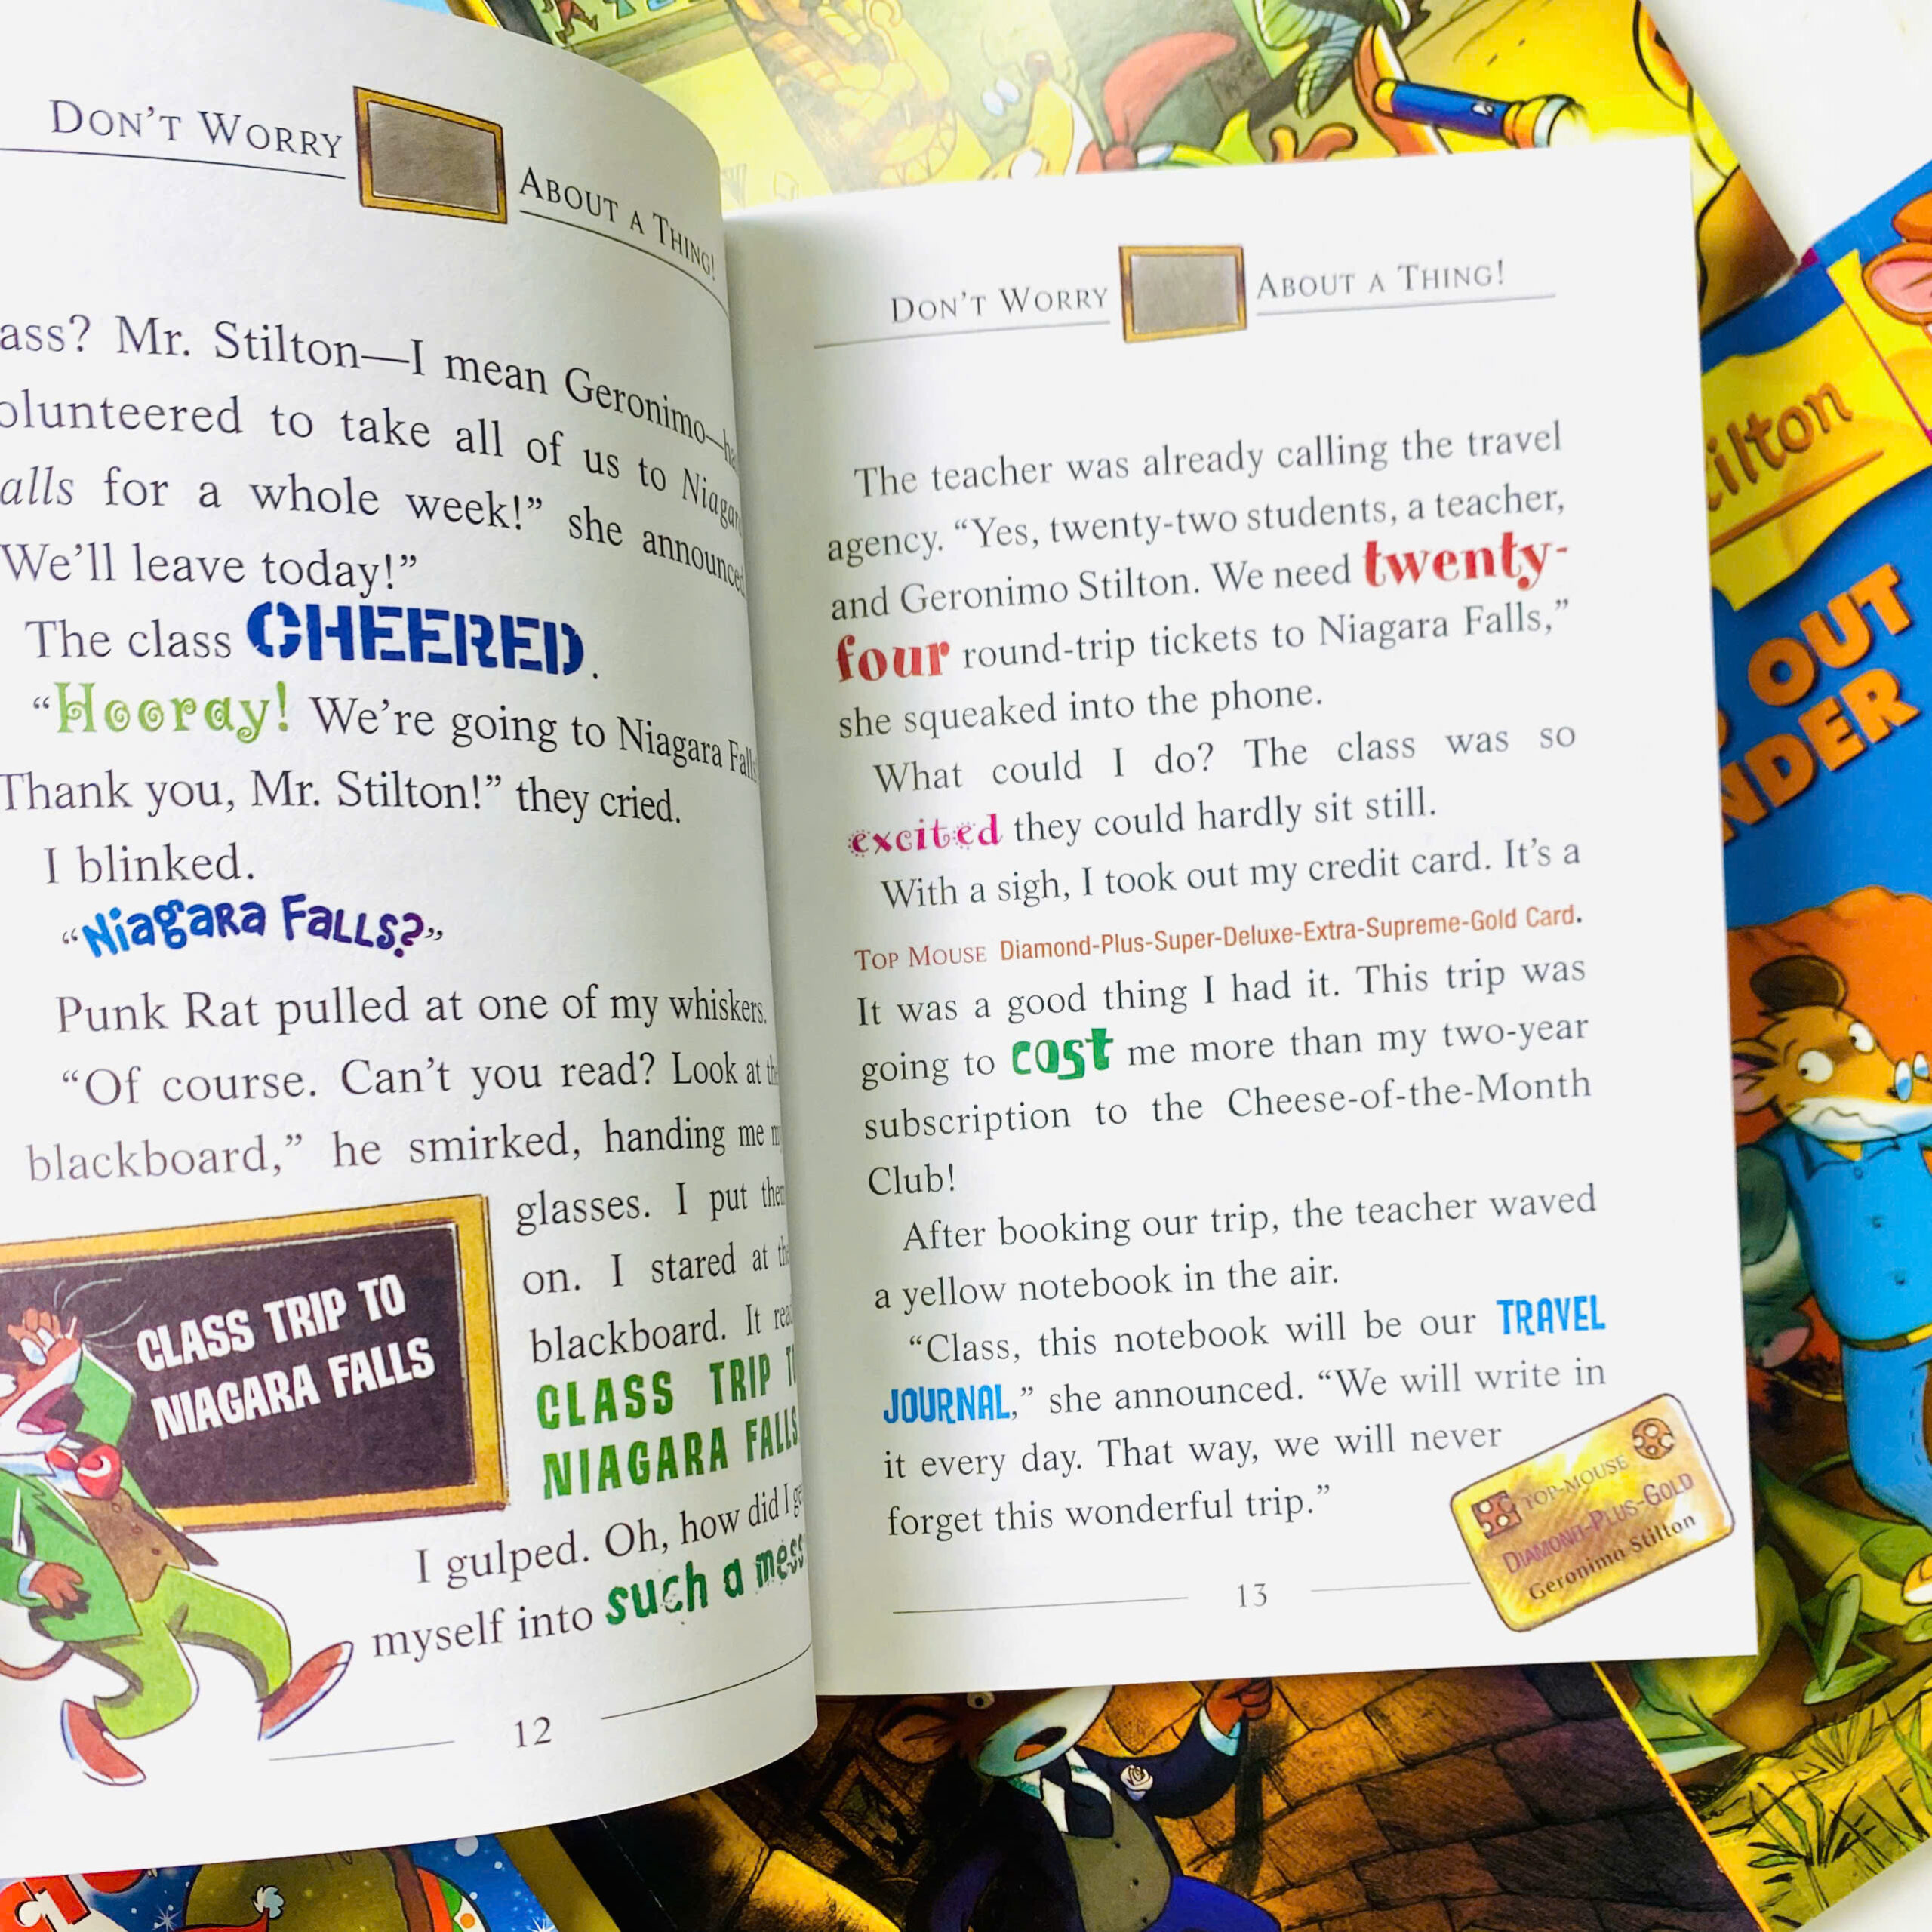 DON'T WORRY ABOUT A THING!
ass? Mr. Stilton—I mean Geronimo—ha
olunteered to take all of us to Niagar
alls for a whole week!” she announced
We'll leave today!”
The class CHEERED.
“Hooray! We're going to Niagara Falls
Thank you, Mr. Stilton!” they cried.
I blinked.
“Niagara Falls?”
Punk Rat pulled at one of my whiskers.
“Of course. Can't you read? Look at th
blackboard,” he smirked, handing me m
glasses. I put them
on. I stared at the
blackboard. It read
CLASS TRIP TO
NIAGARA FALLS
I gulped. Oh, how did I ge
myself into such a mess
CLASS TRIP TO
NIAGARA FALLS
12
DON'T WORRY ABOUT A THING!
The teacher was already calling the travel
agency. “Yes, twenty-two students, a teacher,
and Geronimo Stilton. We need twenty-
four round-trip tickets to Niagara Falls,”
she squeaked into the phone.
What could I do? The class was so
excited they could hardly sit still.
With a sigh, I took out my credit card. It's a
TOP MOUSE Diamond-Plus-Super-Deluxe-Extra-Supreme-Gold Card.
It was a good thing I had it. This trip was
going to cost me more than my two-year
subscription to the Cheese-of-the-Month
Club!
After booking our trip, the teacher waved
a yellow notebook in the air.
“Class, this notebook will be our TRAVEL
JOURNAL,” she announced. “We will write in
it every day. That way, we will never
forget this wonderful trip.”
TOP-MOUSE
DIAMOND-PLUS-GOLD
Geronimo Stilton
13
ilton
OUT
NDER